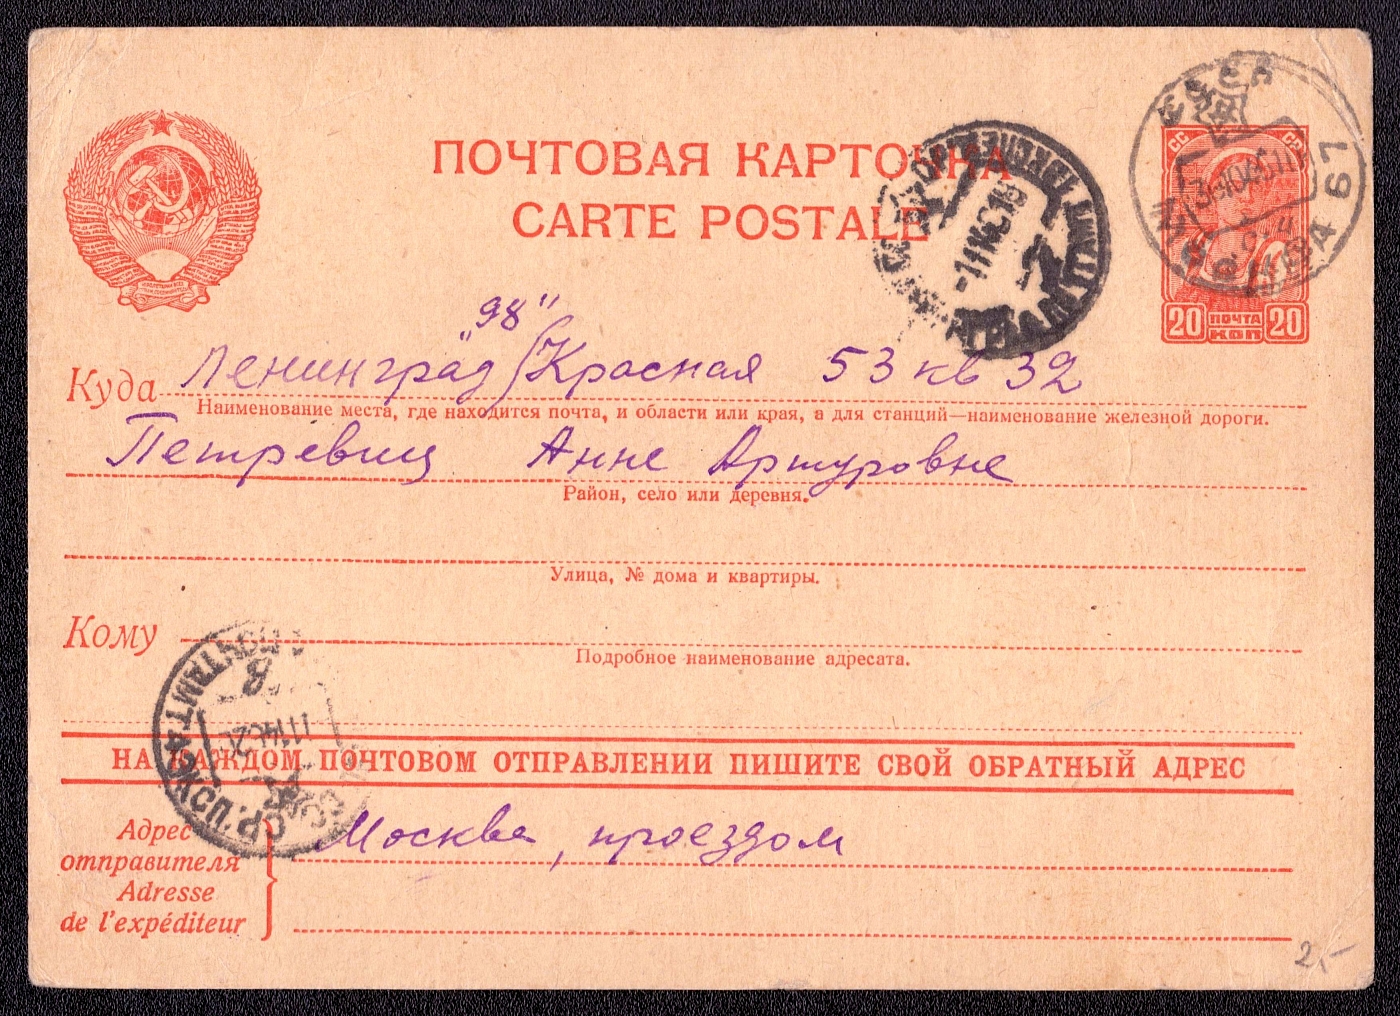 ПОЧТОВАЯ КАРТОЧКА
CARTE POSTALE
СС СР
20 ПОЧТА КОП 20
МОСКВА 61
"98"
Куда Ленинград / Красная 53 кв 32
Наименование места, где находится почта, и области или края, а для станций—наименование железной дороги.
Петревиц Анне Артуровне
Район, село или деревня.
Улица, № дома и квартиры.
Кому
Подробное наименование адресата.
ПОЧТАМТ
НА КАЖДОМ ПОЧТОВОМ ОТПРАВЛЕНИИ ПИШИТЕ СВОЙ ОБРАТНЫЙ АДРЕС
Адрес
отправителя
Adresse
de l'expéditeur
Москва, проездом
2,-